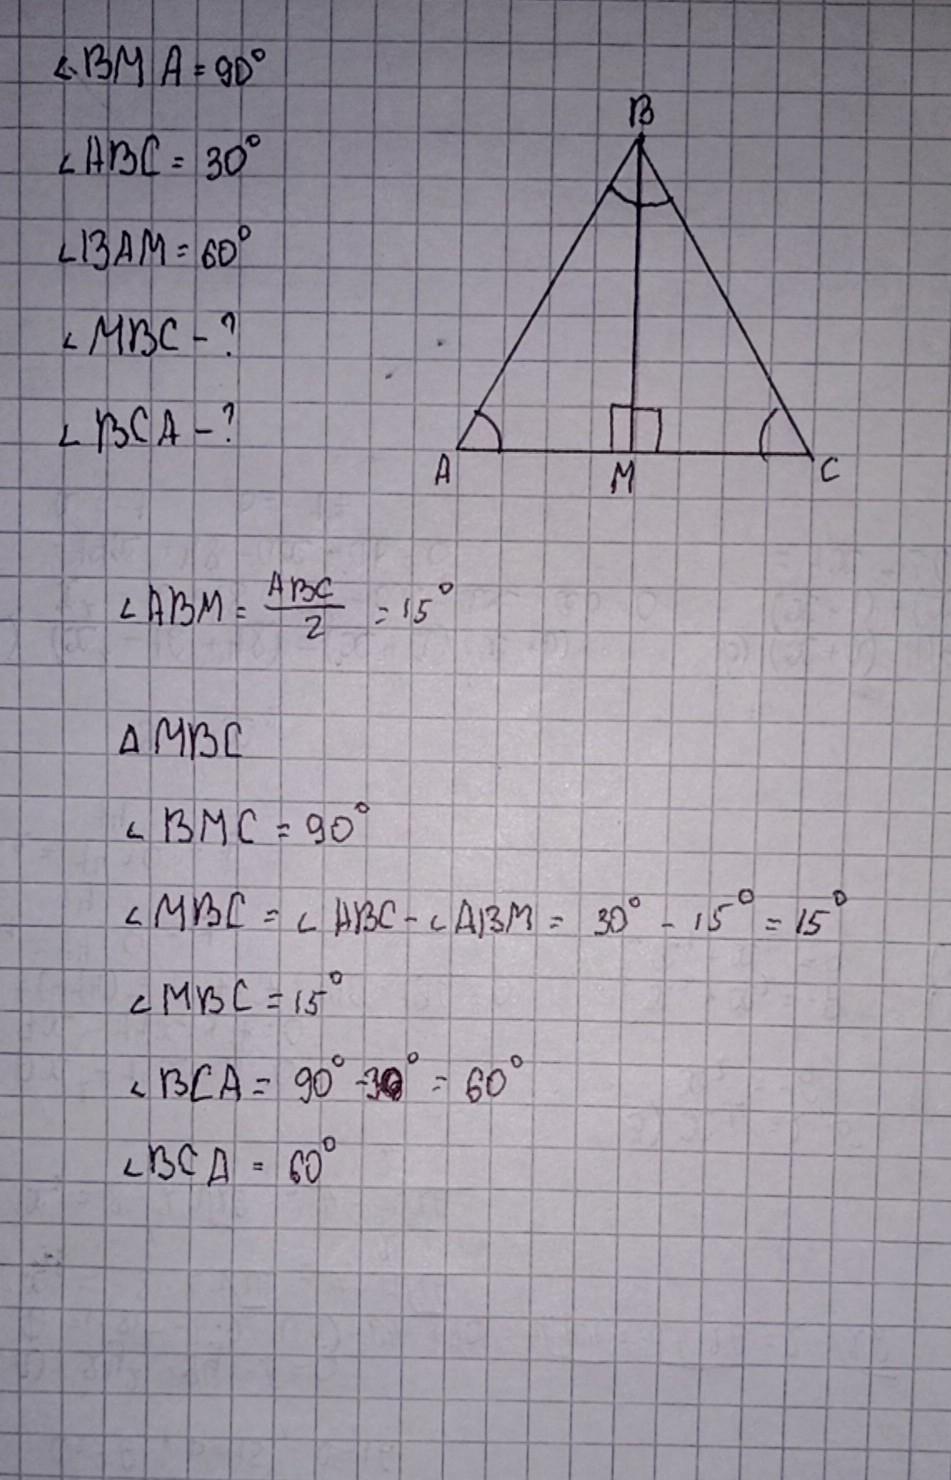 ∠BMA = 90°
∠ABC = 30°
∠BAM = 60°
∠MBC - ?
∠BCA - ?
B
A
M
C
∠ABM = ABC/2 = 15°
Δ MBC
∠BMC = 90°
∠MBC = ∠ABC - ∠ABM = 30° - 15° = 15°
∠MBC = 15°
∠BCA = 90° - 30° = 60°
∠BCA = 60°